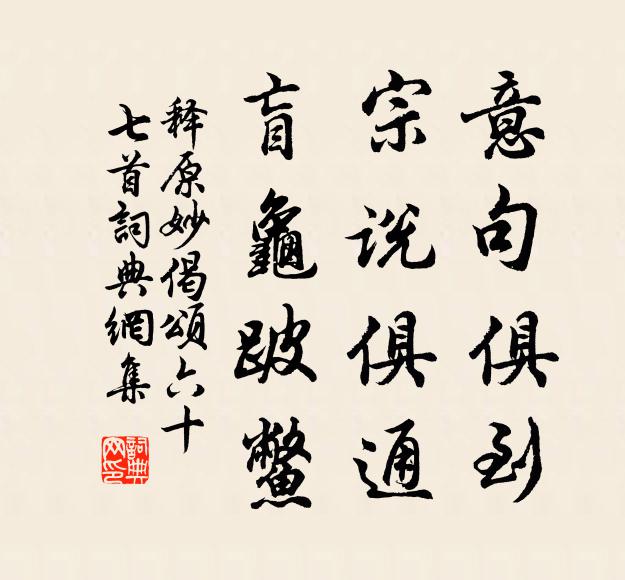 意句俱到
宗说俱通
盲龜跛鱉
释原妙偈頌六十
七首詞典網集
詞典
网印